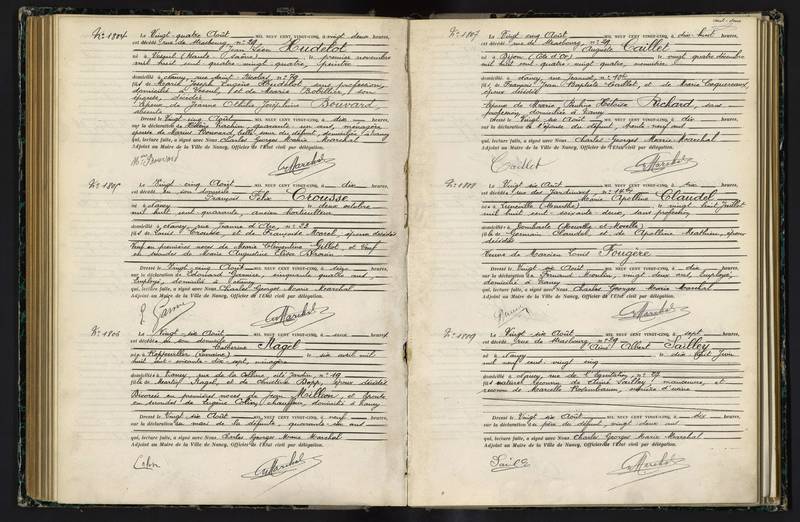 N° 1804 Le Vingt quatre Août MIL NEUF CENT VINGT-CINQ, à vingt deux heures,
est décédé rue de Strasbourg, n° 29
Jean Léon Hudelot
né à Vesoul (Haute Saône), le premier novembre
mil huit cent soixante vingt quatre, peintre
domicilié à Nancy, rue Saint Nicolas, n° 79
fils de Marie Joseph Eugène Hudelot, sans profession,
domicilié à Vesoul, et de Maria Bobillier, son
épouse, décédée
Epoux de Jeanne Othilie Joséphine Bouvard,
absente
Dressé le Vingt cinq Août MIL NEUF CENT VINGT-CINQ, à dix heures,
sur la déclaration de Hélène quarante un ans, ménagère
épouse de Marius Bouvard, belle sœur du défunt, domiciliée à Nancy
qui, lecture faite, a signé avec Nous Charles Georges Marie Maréchal
Adjoint au Maire de la Ville de Nancy, Officier de l'État civil par délégation.
H. Bouvard GMaréchal
N° 1805 Le Vingt cinq Août MIL NEUF CENT VINGT-CINQ, à dix heures,
est décédé en son domicile
François Félix Crousse
né à Nancy le deux octobre
mil huit cent quarante, ancien horticulteur
domicilié à Nancy, rue Jeanne d'Arc, n° 23
fils de Louis Crousse, et de Françoise Marcel, époux décédés
Veuf en premières noces de Marie Clémentine Gillot, et Veuf
en secondes de Marie Augustine Elise
Dressé le Vingt cinq Août MIL NEUF CENT VINGT-CINQ, à seize heures,
sur la déclaration de Edouard Garnier, cinquante quatre ans,
employé, domicilié à Nancy
qui, lecture faite, a signé avec Nous Charles Georges Marie Maréchal
Adjoint au Maire de la Ville de Nancy, Officier de l'État civil par délégation.
E. Garnier GMaréchal
N° 1806 Le Vingt six Août MIL NEUF CENT VINGT-CINQ, à deux heures
est décédée en son domicile
Catherine Nagel
née à (Lorraine) le six avril mil
huit cent soixante dix sept, ménagère
domiciliée à Nancy, rue de la Colline, cité Jardin, n° 19
fille de Nagel, et de Christine Bopp, époux décédés
Divorcée en premières noces de Jean Million, et épouse
en secondes de Colin, chauffeur, domicilié à Nancy
Dressé le Vingt six Août MIL NEUF CENT VINGT-CINQ, à neuf heures,
sur la déclaration du mari de la défunte, quarante un ans
qui, lecture faite, a signé avec Nous Charles Georges Marie Maréchal
Adjoint au Maire de la Ville de Nancy, Officier de l'État civil par délégation.
Colin GMaréchal
N° 1807 Le Vingt cinq Août MIL NEUF CENT VINGT-CINQ, à dix huit heures,
est décédé rue de Strasbourg, n° 29
Auguste Caillet
né à Dijon (Côte d'Or) le vingt quatre décembre
mil huit cent quatre vingt quatre,
domicilié à Nancy, rue Jeanne, n° 106
fils de François Jean Baptiste Caillet, et de Marie
époux décédés
Epoux de Marie Richard, sans
profession, domiciliée à Nancy
Dressé le Vingt six Août MIL NEUF CENT VINGT-CINQ, à dix heures,
sur la déclaration de l'épouse du défunt, trente neuf ans
qui, lecture faite, a signé avec Nous Charles Georges Marie Maréchal
Adjoint au Maire de la Ville de Nancy, Officier de l'État civil par délégation.
Caillet GMaréchal
N° 1808 Le Vingt six Août MIL NEUF CENT VINGT-CINQ, à six heures,
est décédée rue des Jardiniers, n°
Marie Apolline Claudel
née à Lunéville (Meurthe) le vingt huit Juillet
mil huit cent soixante deux, sans profession
domiciliée à Dombasle (Meurthe et Moselle)
fille de Germain Claudel, et de Apolline Mathieu, époux
décédés
Veuve de Louis Fougère
Dressé le Vingt six Août MIL NEUF CENT VINGT-CINQ, à dix heures,
sur la déclaration de Fernand vingt deux ans, employé,
domicilié à Nancy
qui, lecture faite, a signé avec Nous Charles Georges Marie Maréchal
Adjoint au Maire de la Ville de Nancy, Officier de l'État civil par délégation.
GMaréchal
N° 1809 Le Vingt six Août MIL NEUF CENT VINGT-CINQ, à sept heures,
est décédé rue de Strasbourg, n° 29
Albert Sailley
né à Nancy le dix huit Juin
mil neuf cent vingt cinq
domicilié à Nancy, rue de n° 27
fils naturel reconnu de Sailley, manœuvre, et
reconnu de Marcelle Rosenbaum, ouvrière d'usine
Dressé le Vingt six Août MIL NEUF CENT VINGT-CINQ, à dix heures,
sur la déclaration du père du défunt, vingt deux ans
qui, lecture faite, a signé avec Nous Charles Georges Marie Maréchal
Adjoint au Maire de la Ville de Nancy, Officier de l'État civil par délégation.
GMaréchal